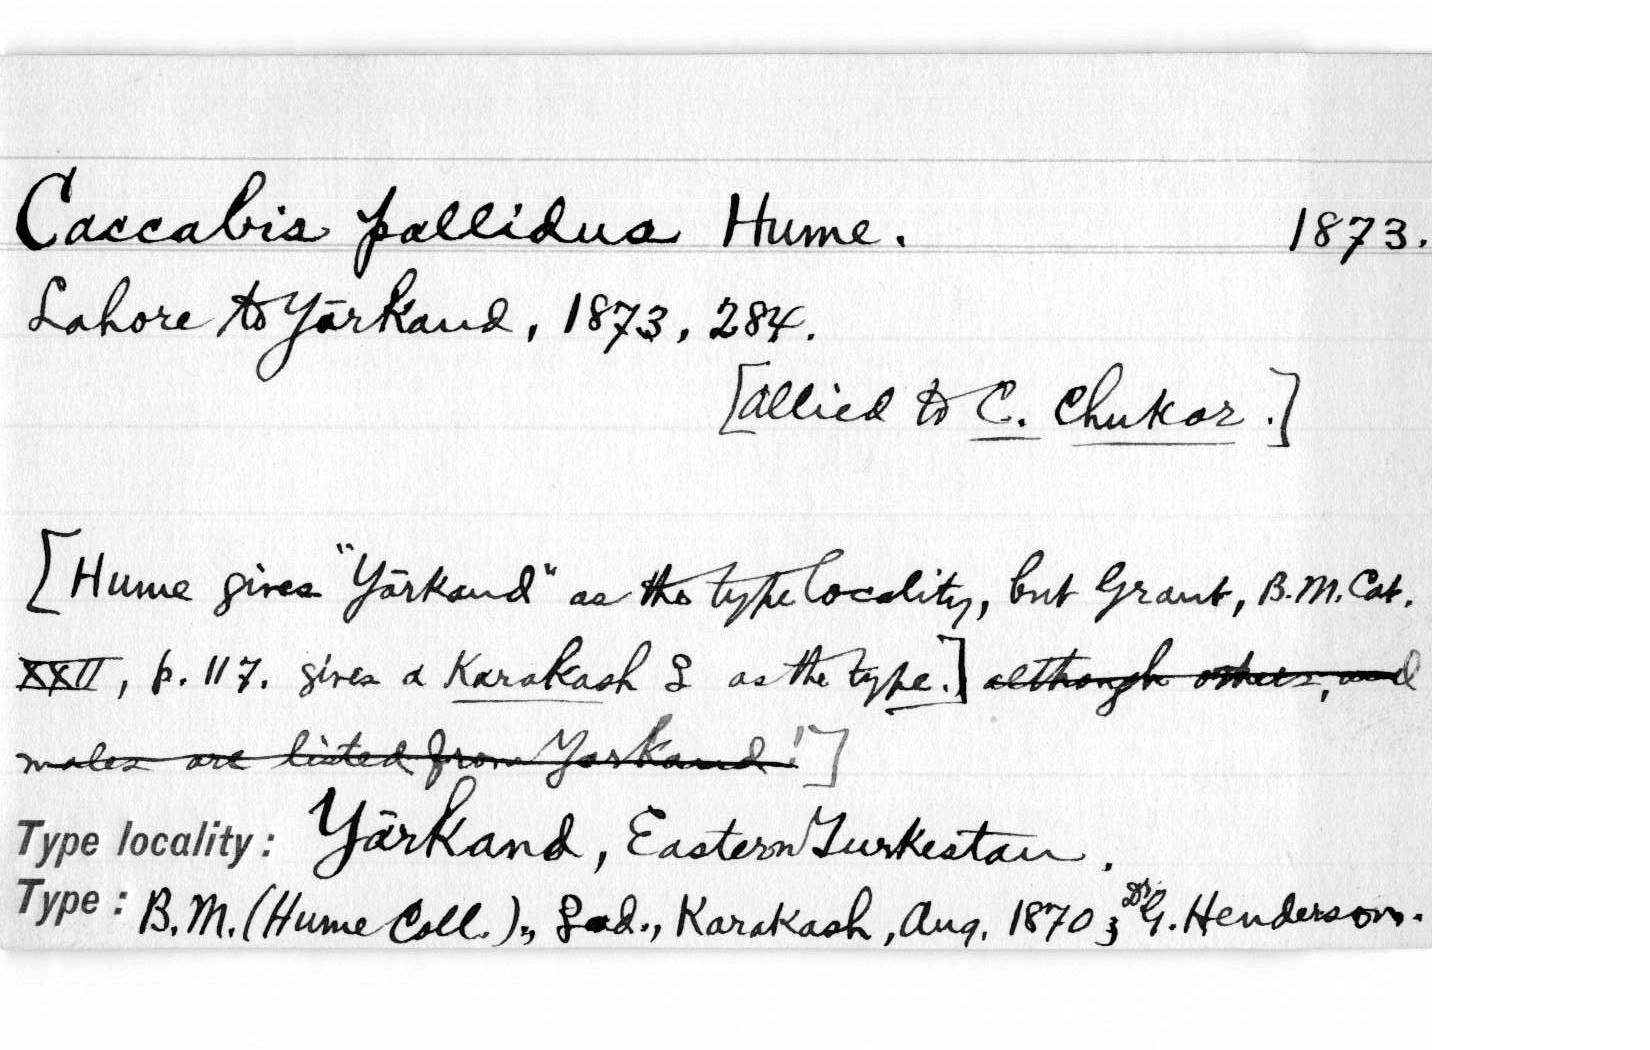 Caccabis pallidus Hume. 1873.
Lahore to Yārkand, 1873, 284.
[allied to C. Chukar.]
[Hume gives "Yārkand" as the type locality, but Grant, B.M. Cat.
XXII, p. 117. gives a Karakash ♀ as the type.] although others, and
males are listed from Yarkand!]
Type locality: Yārkand, Eastern Turkestan.
Type: B.M. (Hume Coll.)., ♀ ad., Karakash, Aug. 1870; Dr. G. Henderson.